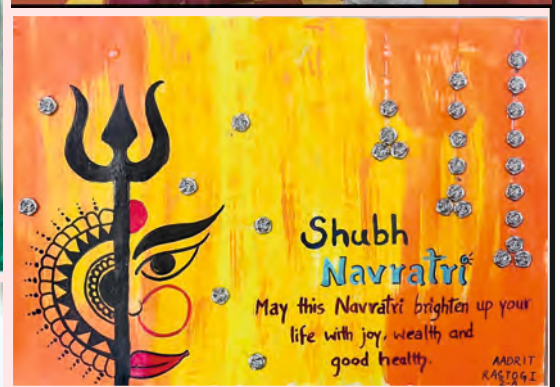 Shubh
Navratri
May this Navratri brighten up your
life with joy, wealth and
good health.
AADRIT
RASTOGI